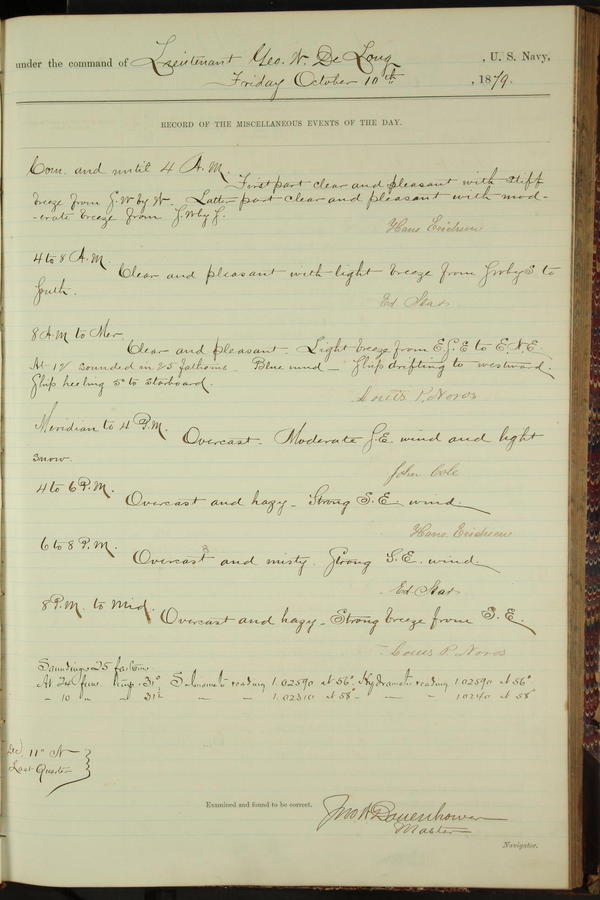 under the command of Lieutenant Geo. W. De Long, U. S. Navy,
Friday October 10th, 1879.
RECORD OF THE MISCELLANEOUS EVENTS OF THE DAY.
Com. and until 4 A.M.
First part clear and pleasant with stiff
breeze from S.W by W. Latter part clear and pleasant with mod-
-erate breeze from S.W by S.
Hans Erichsen
4 to 8 A.M.
Clear and pleasant with light breeze from S.W by S to
South.
Ed Star
8 A.M to Mer.
Clear and pleasant. Light breeze from E.S.E to E.N.E.
At 12 sounded in 25 fathoms. Blue mud — Ship drifting to westward.
Ship heeling 5° to starboard.
Louis P. Noros
Meridian to 4 P.M.
Overcast. Moderate S.E. wind and light
snow.
John Cole
4 to 6 P.M.
Overcast and hazy. Strong S.E. wind.
Hans Erichsen
6 to 8 P.M.
Overcast and misty. Strong S.E. wind.
Ed. Star
8 P.M. to Mid.
Overcast and hazy. Strong breeze from S.E.
Louis P. Noros
Soundings 25 fathoms
At 24 fms. temp. 31° Salinometer reading 1.02590 at 56° Hydrometer reading 1.02590 at 56°
" 10 " " 31½ — " 1.02310 at 58° — " 1.0240 at 58°
Dec. 11° N
Last Quarter
Examined and found to be correct.
Jno W Danenhower
Master
Navigator.